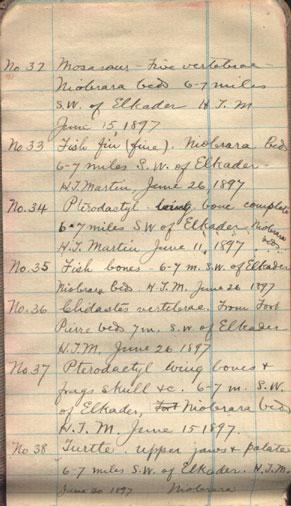 No 32 Mosasaur - Five vertebrae -
Niobrara bed 6-7 miles
S.W. of Elkader H.T.M
June 15, 1897
No 33 Fish fin (fine). Niobrara Bed
6-7 miles S.W. of Elkader -
H.T. Martin, June 26, 1897
No. 34 Pterodactyl wing bone complete
6-7 miles S.W. of Elkader, Niobrara
bed.
H.T. Martin June 11, 1897
No. 35 Fish bones - 6-7 m. S.W. of Elkader
Niobrara bed. H.T.M. June 26 1897
No. 36 Clidastes vertebrae. From Fort
Pierre bed 7m. S.W. of Elkader
H.T.M. June 26 1897
No. 37 Pterodactyl wing bones &
frags skull &c. 6-7 m. S.W.
of Elkader, Fort Niobrara bed
H.T.M. June 15 1897.
No 38 Turtle. upper jaws & palate
6-7 miles S.W. of Elkader. H.T.M.
June 30 1897 Niobrara